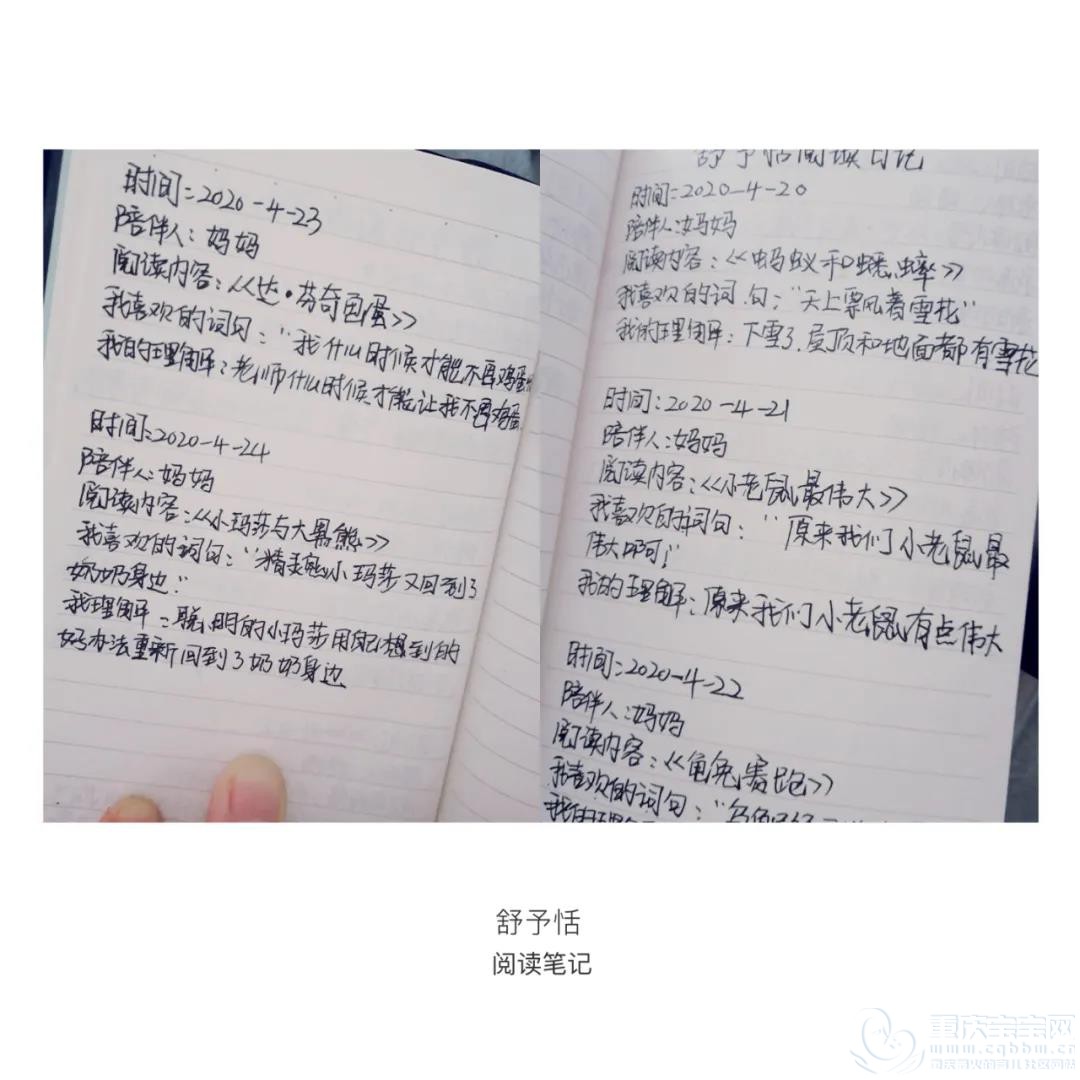 时间:2020-4-23
陪伴人:妈妈
阅读内容:《达·芬奇画蛋》
我喜欢的词句:“我什么时候才能不画鸡蛋
我的理解:老师什么时候才能让我不画鸡蛋
时间:2020-4-24
陪伴人:妈妈
阅读内容:《小玛莎与大黑熊》
我喜欢的词句:“小玛莎又回到了
奶奶身边”
我理解:聪明的小玛莎用自己想到的
好办法重新回到了奶奶身边
舒予恬阅读日记
时间:2020-4-20
陪伴人:妈妈
阅读内容:《蚂蚁和蟋蟀》
我喜欢的词句:“天上票风着雪花”
我的理解:下雪了.屋顶和地面都有雪花
时间:2020-4-21
陪伴人:妈妈
阅读内容:《小老鼠最伟大》
我喜欢的词句:“原来我们小老鼠最
伟大啊!”
我的理解:原来我们小老鼠有点伟大
时间:2020-4-22
陪伴人:妈妈
阅读内容:《龟兔赛跑》
我喜欢的词句:“乌龟
我的理解
舒予恬
阅读笔记
重庆宝宝网
www.cqbbm.cn